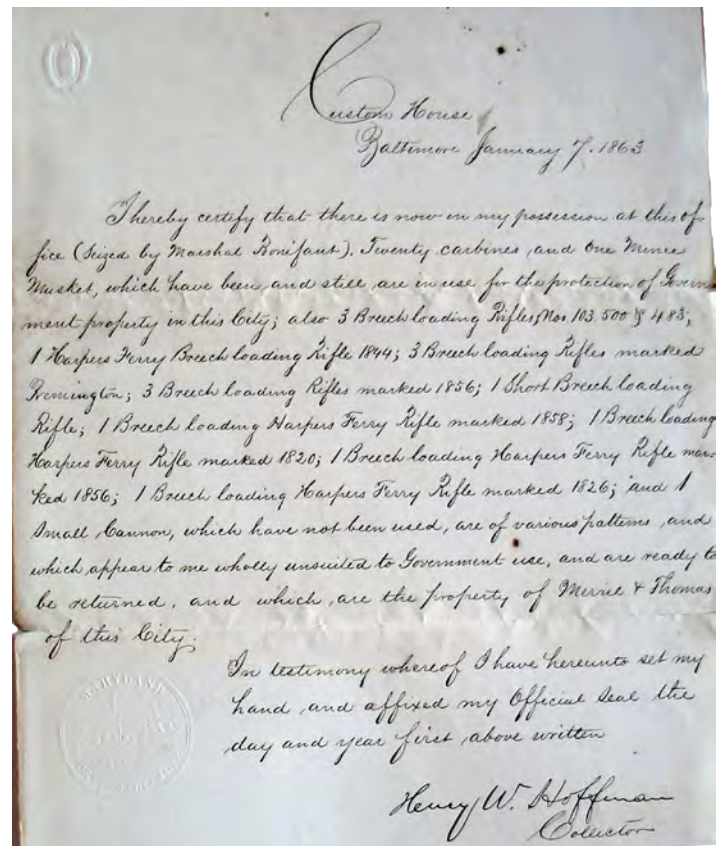 Custom House
Baltimore January 7. 1863
I hereby certify that there is now in my possession at this of-
fice (Seized by Marshal Bonifant). Twenty carbines and One Minie
Musket, which have been and still are in use for the protection of Govern
ment property in this City; also 3 Breech loading Rifles, Nos 103. 500 & 483;
1 Harpers Ferry Breech loading Rifle 1844; 3 Breech loading Rifles marked
Remington; 3 Breech loading Rifles marked 1856; 1 Short Breech loading
Rifle; 1 Breech loading Harpers Ferry Rifle marked 1858; 1 Breech loading
Harpers Ferry Rifle marked 1820; 1 Breech loading Harpers Ferry Rifle mar-
ked 1856; 1 Breech loading Harpers Ferry Rifle marked 1826; and 1
Small Cannon, which have not been used, are of various patterns, and
which appear to me wholly unsuited to Government use, and are ready to
be returned, and which, are the property of Merrie & Thomas
of this City.
In testimony whereof I have hereunto set my
hand, and affixed my Official Seal the
day and year first above written
Henry W. Hoffman
Collector
MARYLAND